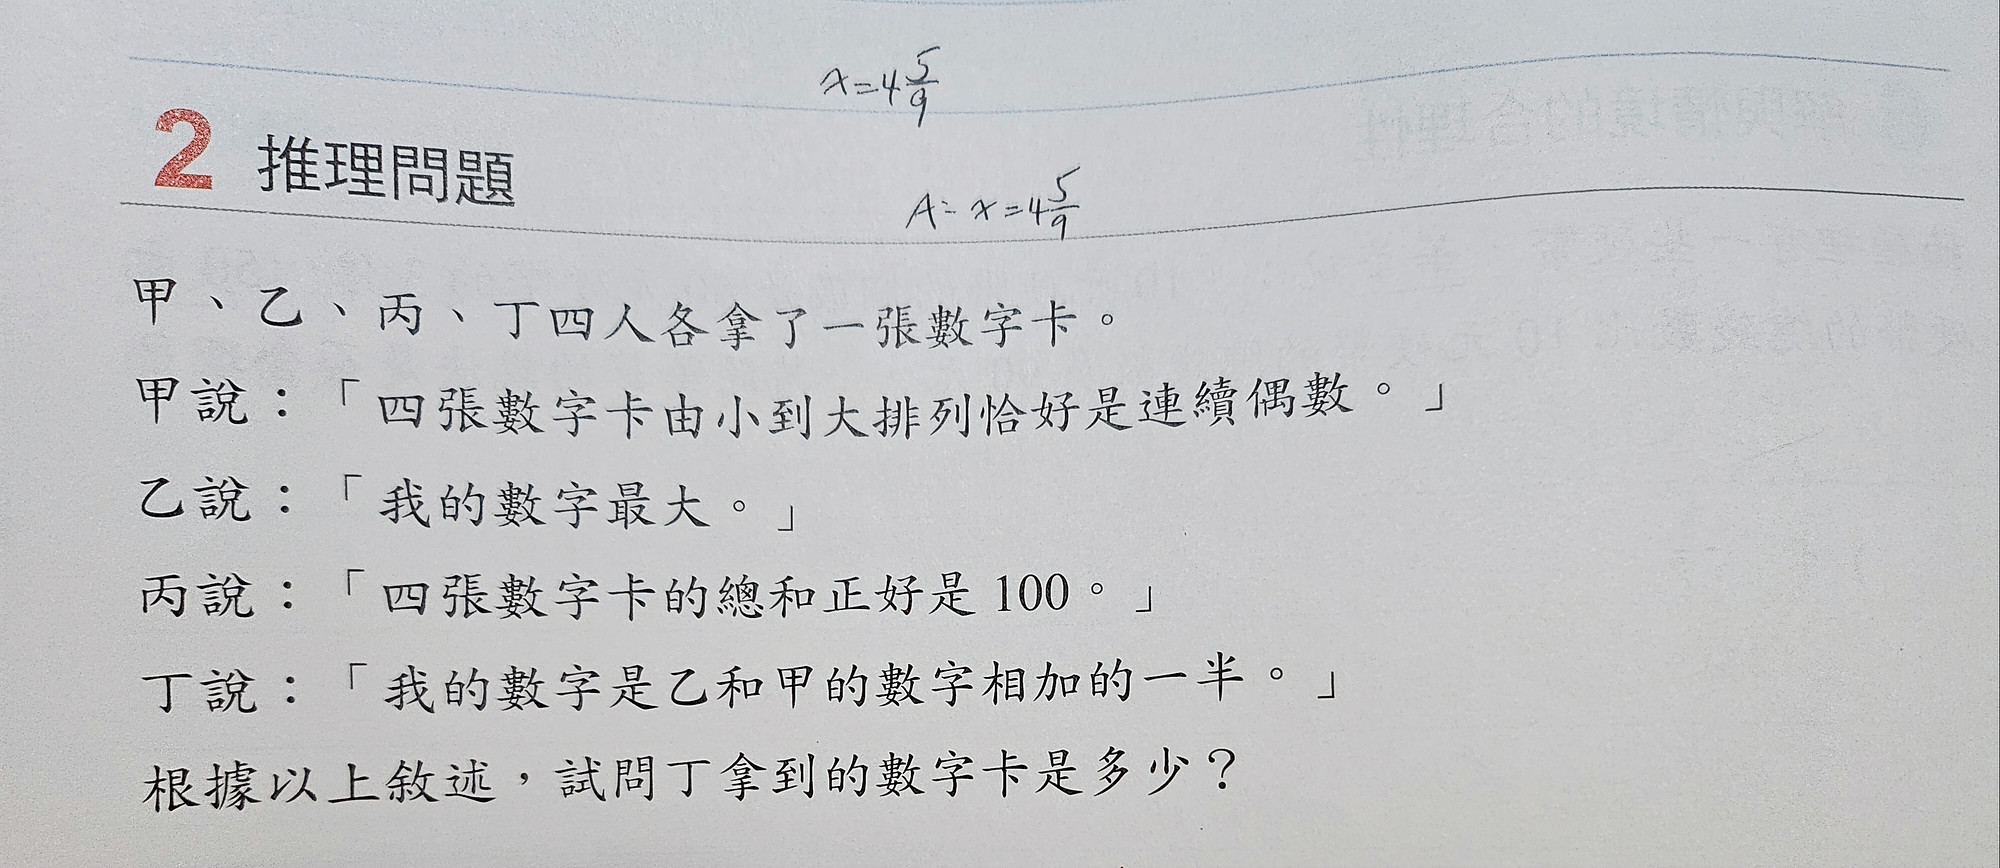 x=4 5/9
2 推理問題
A: x=4 5/9
甲、乙、丙、丁四人各拿了一張數字卡。
甲說：「四張數字卡由小到大排列恰好是連續偶數。」
乙說：「我的數字最大。」
丙說：「四張數字卡的總和正好是 100。」
丁說：「我的數字是乙和甲的數字相加的一半。」
根據以上敘述，試問丁拿到的數字卡是多少？